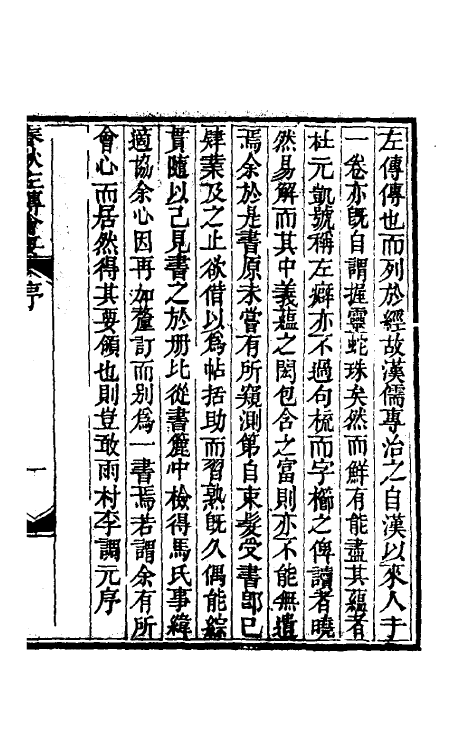 左傳傳也而列於經故漢儒專治之自漢以來人于
一卷亦旣自謂握靈蛇珠矣然而鮮有能盡其蘊者
杜元凱號稱左癖亦不過句梳而字櫛之俾讀者曉
然易解而其中義蘊之閎包含之富則亦不能無遺
焉余於是書原未嘗有所窺測第自束髮受書郎已
肄業及之止欲借以爲帖括助而習熟旣久偶能綜
貫隨以己見書之於册比從書簏中檢得馬氏事緯
適協余心因再加釐訂而别爲一書焉若謂余有所
會心而居然得其要領也則豈敢雨村李調元序
春秋左傳會要 序 一